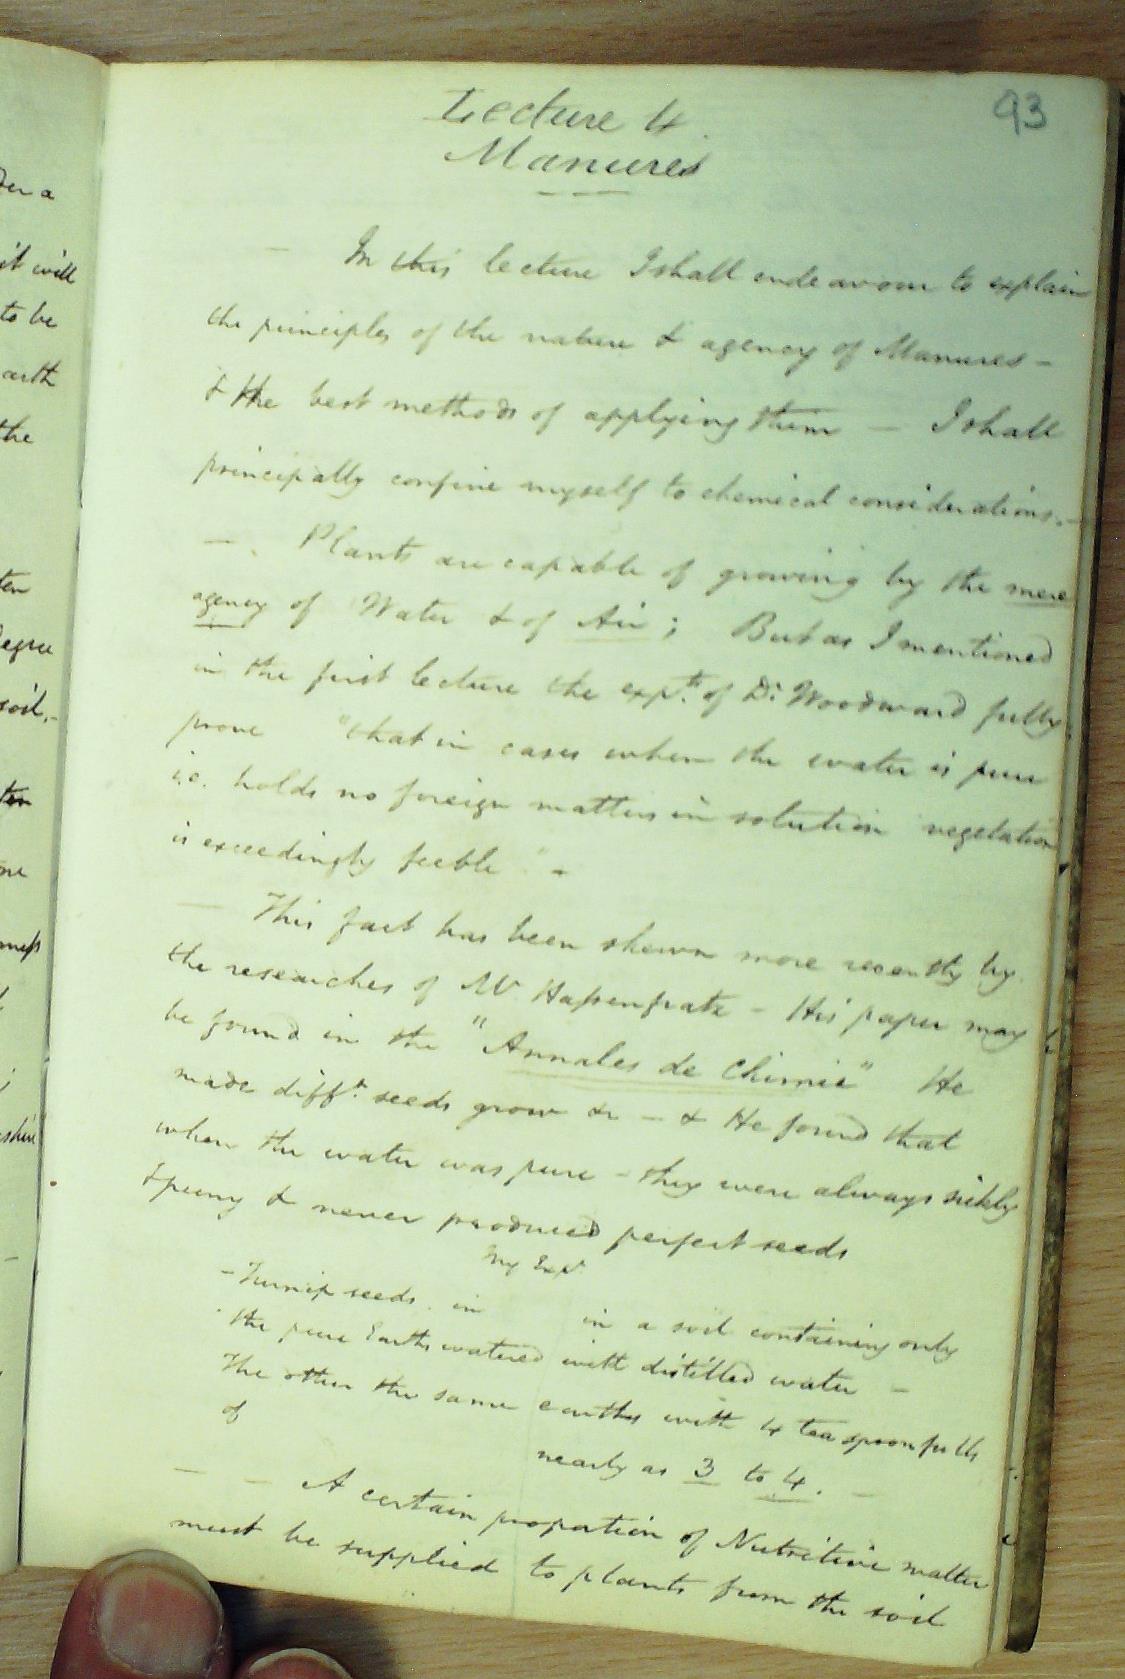 93
Lecture 4.
Manures
— In this lecture I shall endeavour to explain
the principles of the nature & agency of Manures —
& the best methods of applying them — I shall
principally confine myself to chemical considerations. —
— . Plants are capable of growing by the mere
agency of Water & of Air ; But as I mentioned
in the first lecture the expts. of Dr. Woodward fully
prove "that in cases when the water is pure
i.e. holds no foreign matters in solution vegetation
is exceedingly feeble" —
— This fact has been shewn more recently by
the researches of Mr Hassenfratz — His paper may
be found in the "Annales de Chimie" He
made difft. seeds grow &c — & He found that
when the water was pure — they were always sickly
& puny & never produced perfect seeds
My Expt.
— Turnip seeds. in in a soil containing only
the pure Earths watered with distilled water —
The other the same earths with 4 tea spoonfulls
of
nearly as 3 to 4. —
— — A certain proportion of Nutritive matter
must be supplied to plants from the soil
der a
it will
to be
earth
the
ten
degree
soil. —